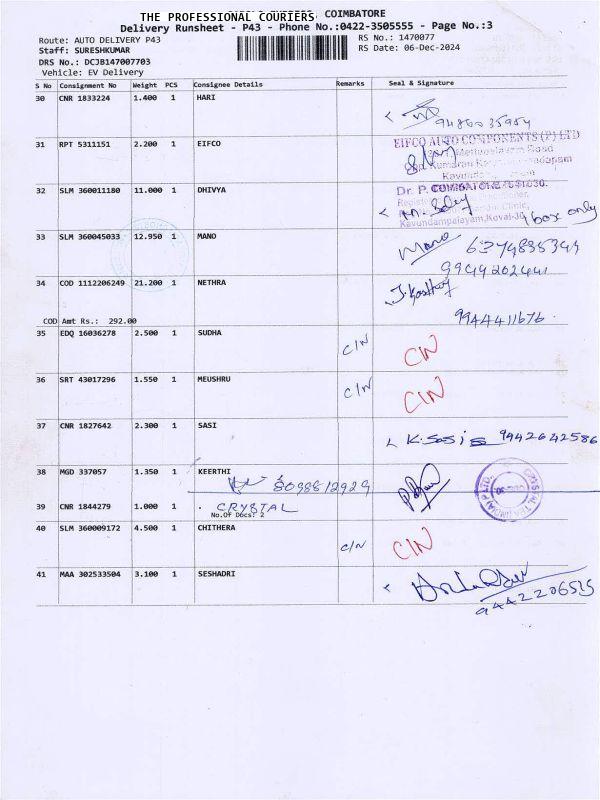 THE PROFESSIONAL COURIERS COIMBATORE
Delivery Runsheet - P43 - Phone No.:0422-3505555 - Page No.:3
Route: AUTO DELIVERY P43
RS No.: 1470077
Staff: SURESHKUMAR
RS Date: 06-Dec-2024
DRS No.: DCJB147007703
Vehicle: EV Delivery
S No Consignment No Weight PCS Consignee Details Remarks Seal & Signature
30 CNR 1833224 1.400 1 HARI
9486035954
31 RPT 5311151 2.200 1 EIFCO
EIFCO AUTO COMPONENTS (P) LTD
32 SLM 360011180 11.000 1 DHIVYA
Dr. P.
Kavundampalayam, Kovai-30
1 box only
33 SLM 360045033 12.950 1 MANO
Mano 6374835344
9944202441
34 COD 1112206249 21.200 1 NETHRA
9944411676
COD Amt Rs.: 292.00
35 EDQ 16036278 2.500 1 SUDHA
C/N CIN
36 SRT 43017296 1.550 1 MEUSHRU
C/N CIN
37 CNR 1827642 2.300 1 SASI
K. Sasi 9942642586
38 MGD 337057 1.350 1 KEERTHI
8098812929
39 CNR 1844279 1.000 1 CRYSTAL
No.Of Docs: 2
40 SLM 360009172 4.500 1 CHITHERA
C/N CIN
41 MAA 302533504 3.100 1 SESHADRI
9442206515